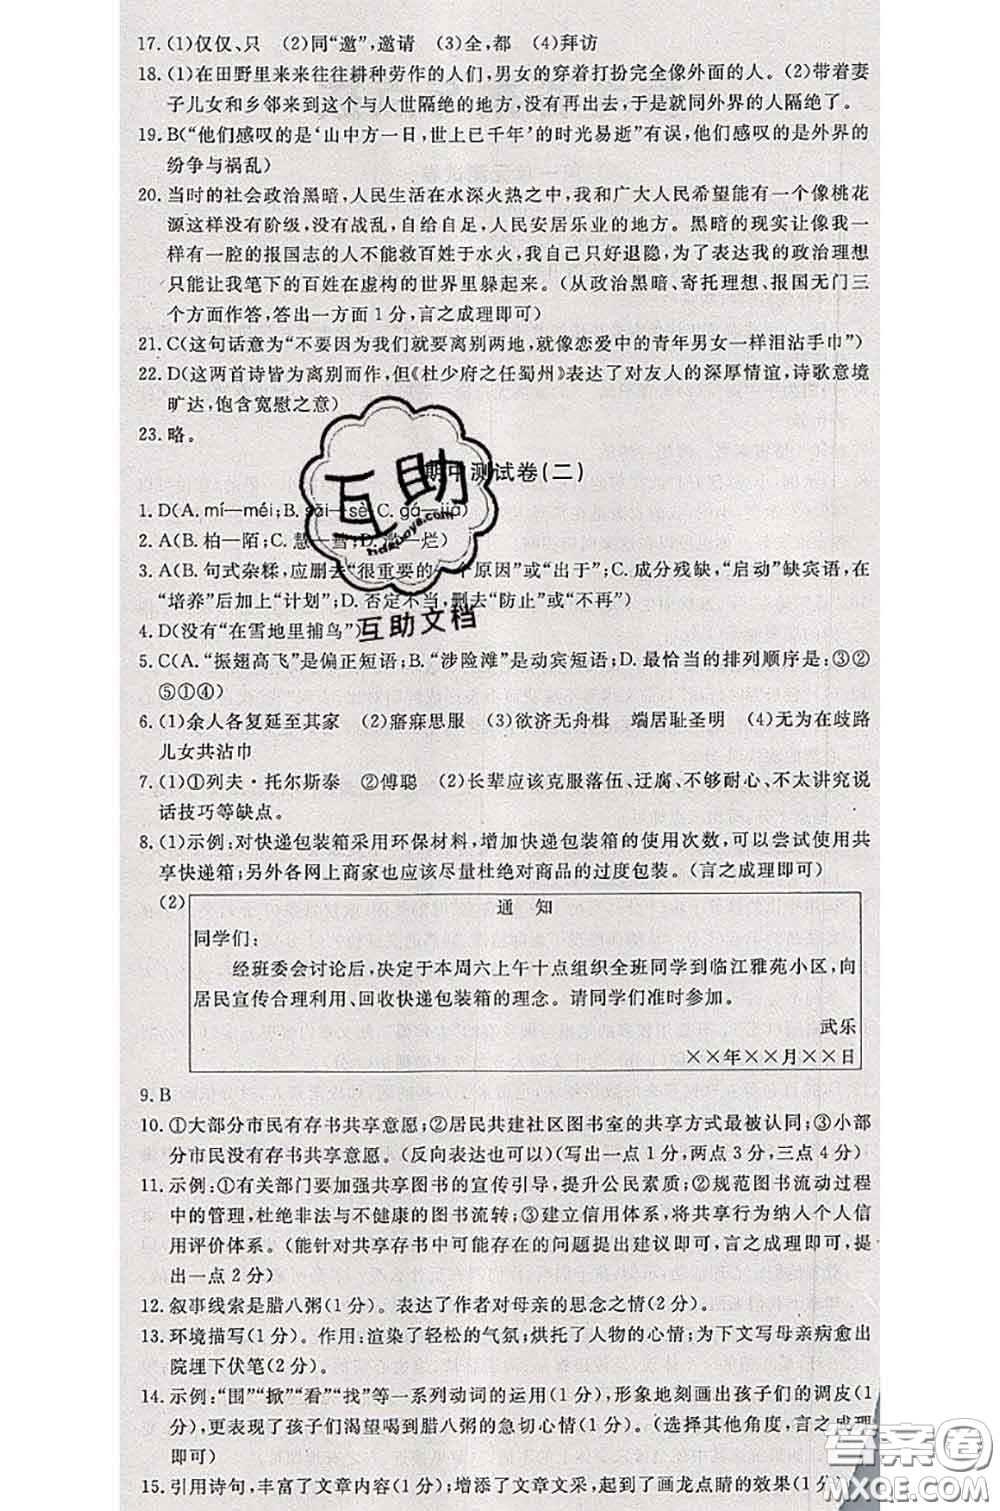 17. (1)仅仅、只　(2)同“邀”,邀请　(3)全,都　(4)拜访
18. (1)在田野里来来往往耕种劳作的人们,男女的穿着打扮完全像外面的人。(2)带着妻
子儿女和乡邻来到这个与人世隔绝的地方,没有再出去,于是就同外界的人隔绝了。
19. B(“他们感叹的是‘山中方一日,世上已千年’的时光易逝”有误,他们感叹的是外界的
纷争与祸乱)
20. 当时的社会政治黑暗,人民生活在水深火热之中,我和广大人民希望能有一个像桃花
源这样没有阶级,没有战乱,自给自足,人民安居乐业的地方。黑暗的现实让像我
一样有一腔的报国志的人不能救百姓于水火,我自己只好退隐,为了表达我的政治理想
只能让我笔下的百姓在虚构的世界里躲起来。(从政治黑暗、寄托理想、报国无门三
个方面作答,答出一方面1分,言之成理即可)
21. C(这句话意为“不要因为我们就要离别两地,就像恋爱中的青年男女一样泪沾手巾”)
22. D(这两首诗皆为离别而作,但《杜少府之任蜀州》表达了对友人的深厚情谊,诗歌意境
旷达,饱含宽慰之意)
23. 略。
期中测试卷(二)
1. D(A. mí—méi; B. sāi—sè; C. gá—jiá)
2. A(B. 柏—陌; C. 慧—彗; D. 滥—烂)
3. A(B. 句式杂糅,应删去“很重要的一个原因”或“出于”;C. 成分残缺,“启动”缺宾语,在
“培养”后加上“计划”;D. 否定不当,删去“防止”或“不再”)
4. D(没有“在雪地里捕鸟”)
5. C(A. “振翅高飞”是偏正短语;B. “涉险滩”是动宾短语;D. 最恰当的排列顺序是:③②
⑤①④)
6. (1)余人各复延至其家　(2)寤寐思服　(3)欲济无舟楫　端居耻圣明　(4)无为在歧路
儿女共沾巾
7. (1)①列夫·托尔斯泰　②傅聪　(2)长辈应该克服落伍、迂腐、不够耐心、不太讲究说
话技巧等缺点。
8. (1)示例:对快递包装箱采用环保材料,增加快递包装箱的使用次数,可以尝试使用共
享快递箱;另外各网上商家也应该尽量杜绝对商品的过度包装。(言之成理即可)
(2)
通　知
同学们:
经班委会讨论后,决定于本周六上午十点组织全班同学到临江雅苑小区,向
居民宣传合理利用、回收快递包装箱的理念。请同学们准时参加。
武乐
××年××月××日
9. B
10. ①大部分市民有存书共享意愿;②居民共建社区图书室的共享方式最被认同;③小部
分市民没有存书共享意愿。(反向表达也可)(写出一点1分,两点3分,三点4分)
11. 示例:①有关部门要加强共享图书的宣传引导,提升公民素质;②规范图书流动过程
中的管理,杜绝非法与不健康的图书流转;③建立信用体系,将共享行为纳入个人信
用评价体系。(能针对共享存书中可能存在的问题提出建议即可,言之成理即可,提
出一点2分)
12. 叙事线索是腊八粥(1分)。表达了作者对母亲的思念之情(2分)。
13. 环境描写(1分)。作用:渲染了轻松的气氛;烘托了人物的心情;为下文写母亲病愈出
院埋下伏笔(2分)。
14. 示例:“围”“掀”“看”“找”等一系列动词的运用(1分),形象地刻画出孩子们的调皮(1
分),更表现了孩子们渴望喝到腊八粥的急切心情(1分)。(选择其他角度,言之成理
即可)
15. 引用诗句,丰富了文章内容(1分);增添了文章文采,起到了画龙点睛的效果(1分)。
互助
互助文档
答案圈
MXQE.COM